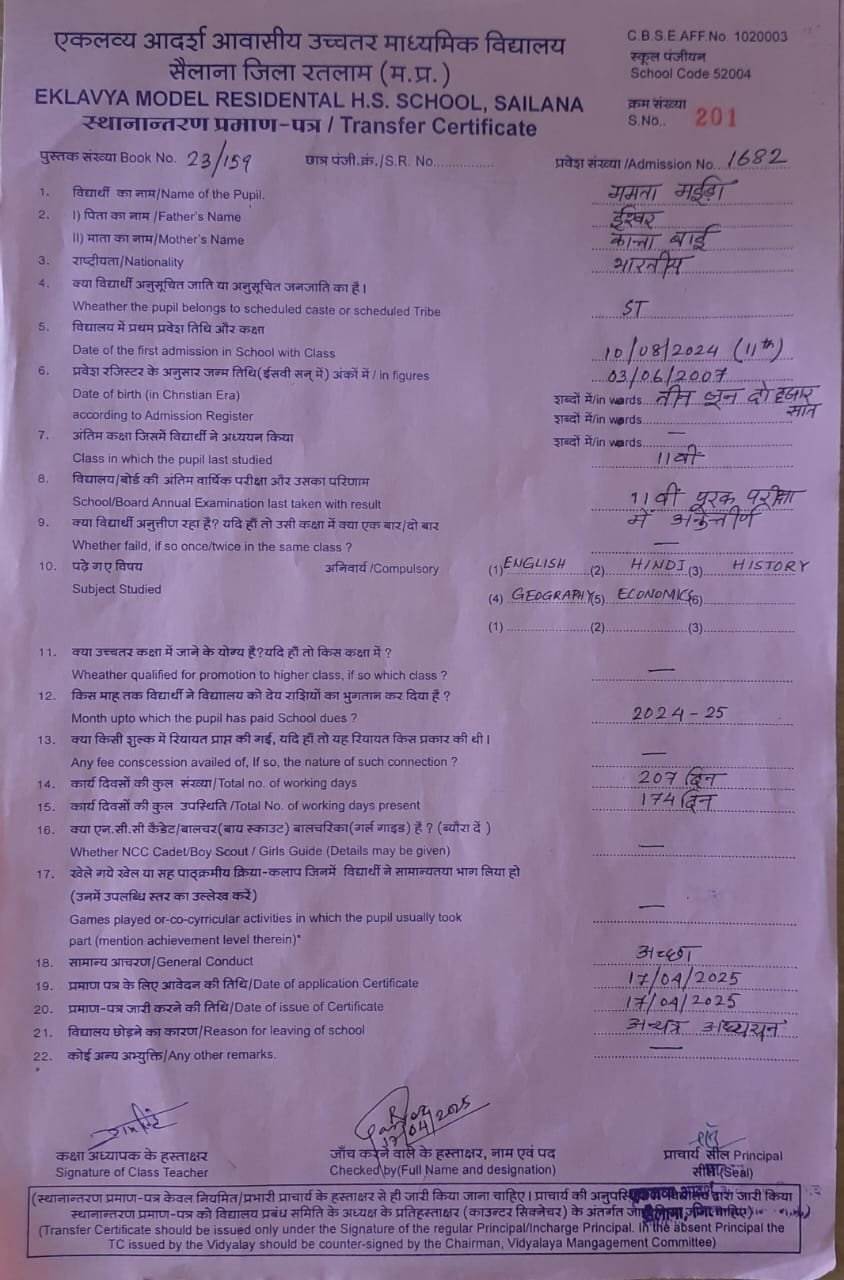 एकलव्य आदर्श आवासीय उच्चतर माध्यमिक विद्यालय
सैलाना जिला रतलाम (म.प्र.)
EKLAVYA MODEL RESIDENTAL H.S. SCHOOL, SAILANA
स्थानान्तरण प्रमाण-पत्र / Transfer Certificate
C.B.S.E AFF.No. 1020003
स्कूल पंजीयन
School Code 52004
क्रम संख्या
S.No.. 201
पुस्तक संख्या Book No. 23/159 छात्र पंजी.क्रं./S.R. No............... प्रवेश संख्या /Admission No.. 1682
1. विद्यार्थी का नाम/Name of the Pupil. ममता मईड़ा
2. I) पिता का नाम /Father's Name ईश्वर
II) माता का नाम/Mother's Name कान्ता बाई
3. राष्ट्रीयता/Nationality भारतीय
4. क्या विद्यार्थी अनुसूचित जाति या अनुसूचित जनजाति का है।
Wheather the pupil belongs to scheduled caste or scheduled Tribe ST
5. विद्यालय में प्रथम प्रवेश तिथि और कक्षा
Date of the first admission in School with Class 10/08/2024 (11th)
6. प्रवेश रजिस्टर के अनुसार जन्म तिथि(ईसवी सन् में) अंकों में / in figures 03/06/2007
Date of birth (in Chrstian Era) शब्दों में/in words तीन जून दो हजार सात
according to Admission Register शब्दों में/in words
7. अंतिम कक्षा जिसमें विद्यार्थी ने अध्ययन किया शब्दों में/in words —
Class in which the pupil last studied 11वीं
8. विद्यालय/बोर्ड की अंतिम वार्षिक परीक्षा और उसका परिणाम
School/Board Annual Examination last taken with result 11वीं पूरक परीक्षा में अनुत्तीर्ण
9. क्या विद्यार्थी अनुत्तीण रहा है? यदि हाँ तो उसी कक्षा में क्या एक बार/दो बार
Whether faild, if so once/twice in the same class ? —
10. पढ़े गए विषय अनिवार्य /Compulsory (1) ENGLISH (2) HINDI (3) HISTORY
Subject Studied (4) GEOGRAPHY (5) ECONOMICS (6)
(1) (2) (3)
11. क्या उच्चतर कक्षा में जाने के योग्य है?यदि हाँ तो किस कक्षा में ?
Wheather qualified for promotion to higher class, if so which class ? —
12. किस माह तक विद्यार्थी ने विद्यालय को देय राशियों का भुगतान कर दिया है ?
Month upto which the pupil has paid School dues ? 2024-25
13. क्या किसी शुल्क में रियायत प्राप्त की गई, यदि हाँ तो यह रियायत किस प्रकार की थी।
Any fee conscession availed of, If so, the nature of such connection ? —
14. कार्य दिवसों की कुल संख्या/Total no. of working days 207 दिन
15. कार्य दिवसों की कुल उपस्थिति /Total No. of working days present 174 दिन
16. क्या एन.सी.सी कैडेट/बालचर(बाय स्काउट) बालचरिका(गर्ल गाइड) है ? (ब्यौरा दें )
Whether NCC Cadet/Boy Scout / Girls Guide (Details may be given) —
17. खेले गये खेल या सह पाठ्क्रमीय क्रिया-कलाप जिनमें विद्यार्थी ने सामान्यतया भाग लिया हो
(उनमें उपलब्धि स्तर का उल्लेख करें)
Games played or-co-cyrricular activities in which the pupil usually took —
part (mention achievement level therein)*
18. सामान्य आचरण/General Conduct अच्छा
19. प्रमाण पत्र के लिए आवेदन की तिथि/Date of application Certificate 17/04/2025
20. प्रमाण-पत्र जारी करने की तिथि/Date of issue of Certificate 17/04/2025
21. विद्यालय छोड़ने का कारण/Reason for leaving of school अन्यत्र अध्ययन
22. कोई अन्य अभ्युक्ति/Any other remarks. —
17/04/2025
कक्षा अध्यापक के हस्ताक्षर
Signature of Class Teacher
जाँच करने वाले के हस्ताक्षर, नाम एवं पद
Checked by(Full Name and designation)
प्राचार्य सील Principal
सील (Seal)
(स्थानान्तरण प्रमाण-पत्र केवल नियमित/प्रभारी प्राचार्य के हस्ताक्षर से ही जारी किया जाना चाहिए। प्राचार्य की द्वारा जारी किया
स्थानान्तरण प्रमाण-पत्र को विद्यालय प्रबंध समिति के अध्यक्ष के प्रतिहस्ताक्षर (काउन्टर सिक्नेचर) के अंतर्गत
(Transfer Certificate should be issued only under the Signature of the regular Principal/Incharge Principal. In the absent Principal the
TC issued by the Vidyalay should be counter-signed by the Chairman, Vidyalaya Mangagement Committee)